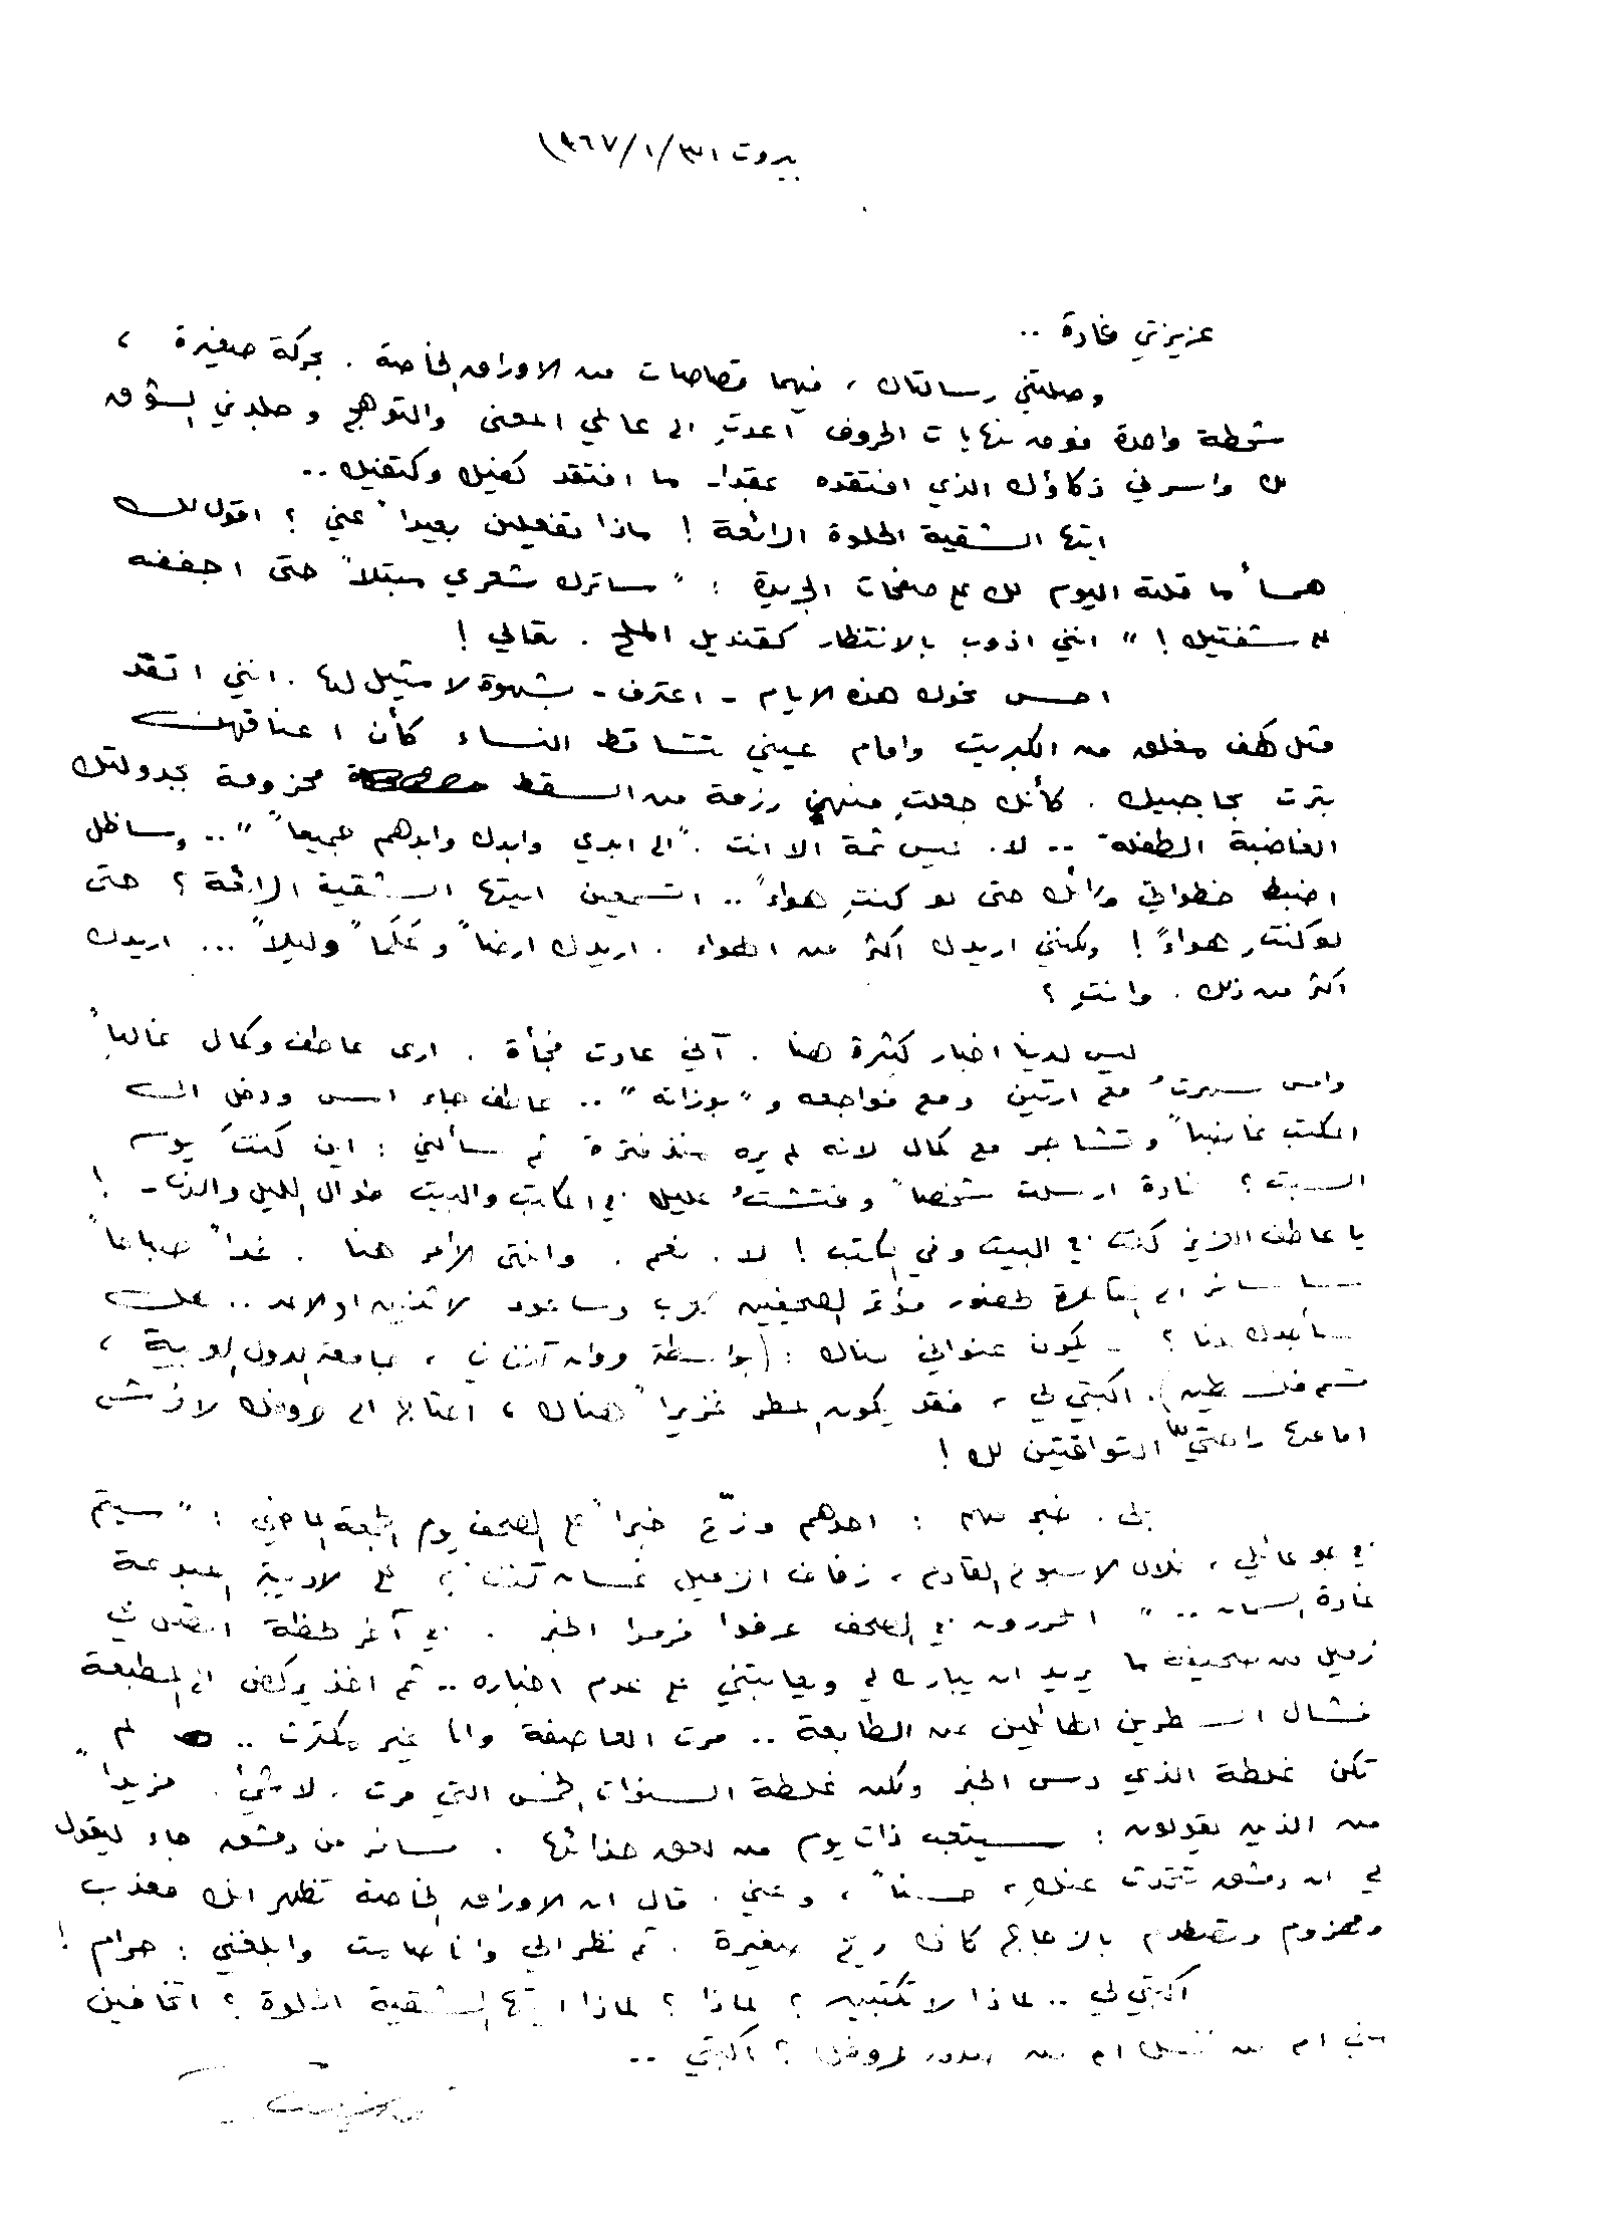 بيروت ٣١/١/١٩٦٧
عزيزتي غادة ..
وصلتني رسالتاك ، فيهما قصاصات من الاوراق الخاصة . بحركة صغيرة ،
شحطة واحدة فوق نهايات الحروف اعدتِ الى عالمي المعنى والتوهج وجلدني الشوق
لك واسرني ذكاؤك الذي افتقده عقدا- ما افتقد كفيك وكتفيك ..
ايتها الشقية الحلوة الرائعة ! ماذا تفعلين بعيداً عني ؟ اقول لك
همساً ما قلته اليوم لك على صفحات الجريدة : " ساترك شعري مبتلاً حتى اجففه
على شفتيك ! " انني اذوب بالانتظار كقنديل الملح . تعالي !
احس نحوك هذه الايام - اعترف - بشهوة لا مثيل لها . انني اتقد
مثل كهف مغلق من الكبريت وامام عيني تتساقط النساء كأن اعناقهن
بترت بحاجبيك . كأنك جعلتِ منهن رزمة من السقط محزومة بجدولتك
الغاضبة الطفلة .. لا . ليس ثمة الا انت . " الى ابدي وابدك وابدهم جميعاً " .. وساظل
اضبط خطواتي وراءك حتى لو كنتِ هواءً .. اتسمعين ايتها الشقية الرائعة ؟ حتى
لو كنتِ هواءً ! ولكنني اريدك اكثر من الهواء . اريدك ارضاً وعَلَماً وليلاً ... اريدك
اكثر من ذلك . وانتِ ؟
ليس لدينا اخبار كثيرة هنا . آني عادت فجأة . ارى عاطف وكمال غالباً
وامس سهرتُ مع ارتين ومع فواجعه و " بوزاته " .. عاطف جاء امس ودخل الى
المكتب غاضباً وتشاجر مع كمال لانه لم يره منذ فترة ثم سألني : اين كنتَ يوم
السبت ؟ غادة ارسلت شخصاً وفتشتُ عليك في المكاتب والبيت طوال الليل والنهار !
يا عاطف العزيز كنت في البيت وفي المكتب ! لا . نعم . وانتهى الأمر هنا . غداً صباحاً
سأسافر الى القاهرة لحضور مؤتمر الصحفيين العرب وساعود الاثنين او الاحد .. هل
سأجدك هنا ؟ سيكون عنواني هناك : ( بواسطة مروان كنفاني ، جامعة الدول العربية ،
قسم فلسطين ) . اكتبي لي ، فقد يكون المطر غزيراً هناك ، احتاج الى حروفك لافرش
امامها راحتيّ التواقتين لك !
بلى . خبر مهم : احدهم وزّع خبراً على الصحف يوم الجمعة الماضي : " سيتم
في جو عائلي ، خلال الاسبوع القادم ، زفاف الزميل غسان كنفاني ، على الاديبة المبدعة
غادة السمان .. " المحررون في الصحف عرفوا فرموا الخبر . في آخر لحظة اتصل بي
زميل من صحيفة ما يريد ان يبارك لي ويعاتبني على عدم اخباره .. ثم اخذ يركض الى المطبعة
فشال السطرين الهائلين عن الطابعة .. مرت العاصفة وانا غير مكترث .. لم
تكن غلطة الذي دس الخبر ولكن غلطة السنوات الخمس التي مرت . لا شيء . مزيداً
من الذين يقولون : سيتعب ذات يوم من لعق حذائها . مسافر من دمشق جاء ليقول
لي ان دمشق تتحدث عنكِ ، حسناً ، وعني . قال ان الاوراق الخاصة تظهر انك معذب
ومهزوم وتصطدم بالزعاج كانك ريح صغيرة . ثم نظر الي وانا صامت وابلغني : حرام !
اكتبي لي .. لماذا لا تكتبين ؟ لماذا ؟ لماذا ايتها الشقية الحلوة ؟ اتخافين
مني ام من نفسك ام من صدق حروفك ؟ اكتبي ..